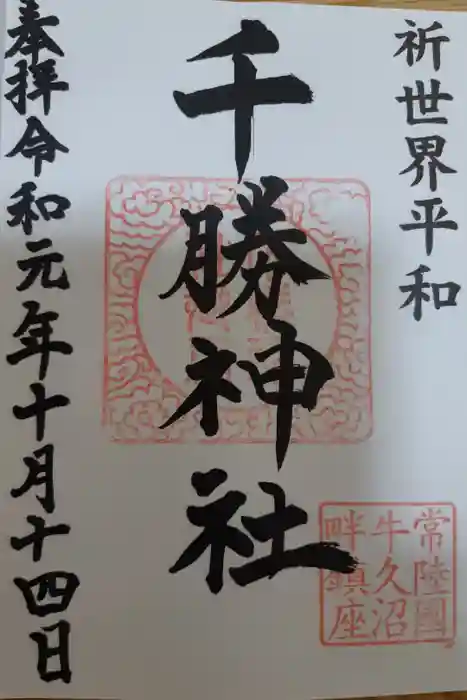 祈世界平和
千勝神社
奉拝令和元年十月十四日
常陸國
牛久沼
畔鎮座